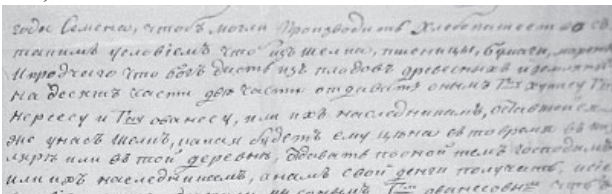 годы Семена, чтобъ могли производить хлебопашество съ
такимъ условіемъ что изъ шелка, пшеницы, бумаги,
и протчаго что богъ дастъ изъ плодовъ древесныхъ и земляны
на десять части две части отдавать онымъ
Нерсесу и Гну ованесу, или ихъ наследникамъ, оставшейся
же у насъ шелкъ, какая будетъ ему цена въ то время въ
или въ той деревни, отдавать по оной темъ господамъ
или ихъ наследникамъ, а намъ свои денги получать,